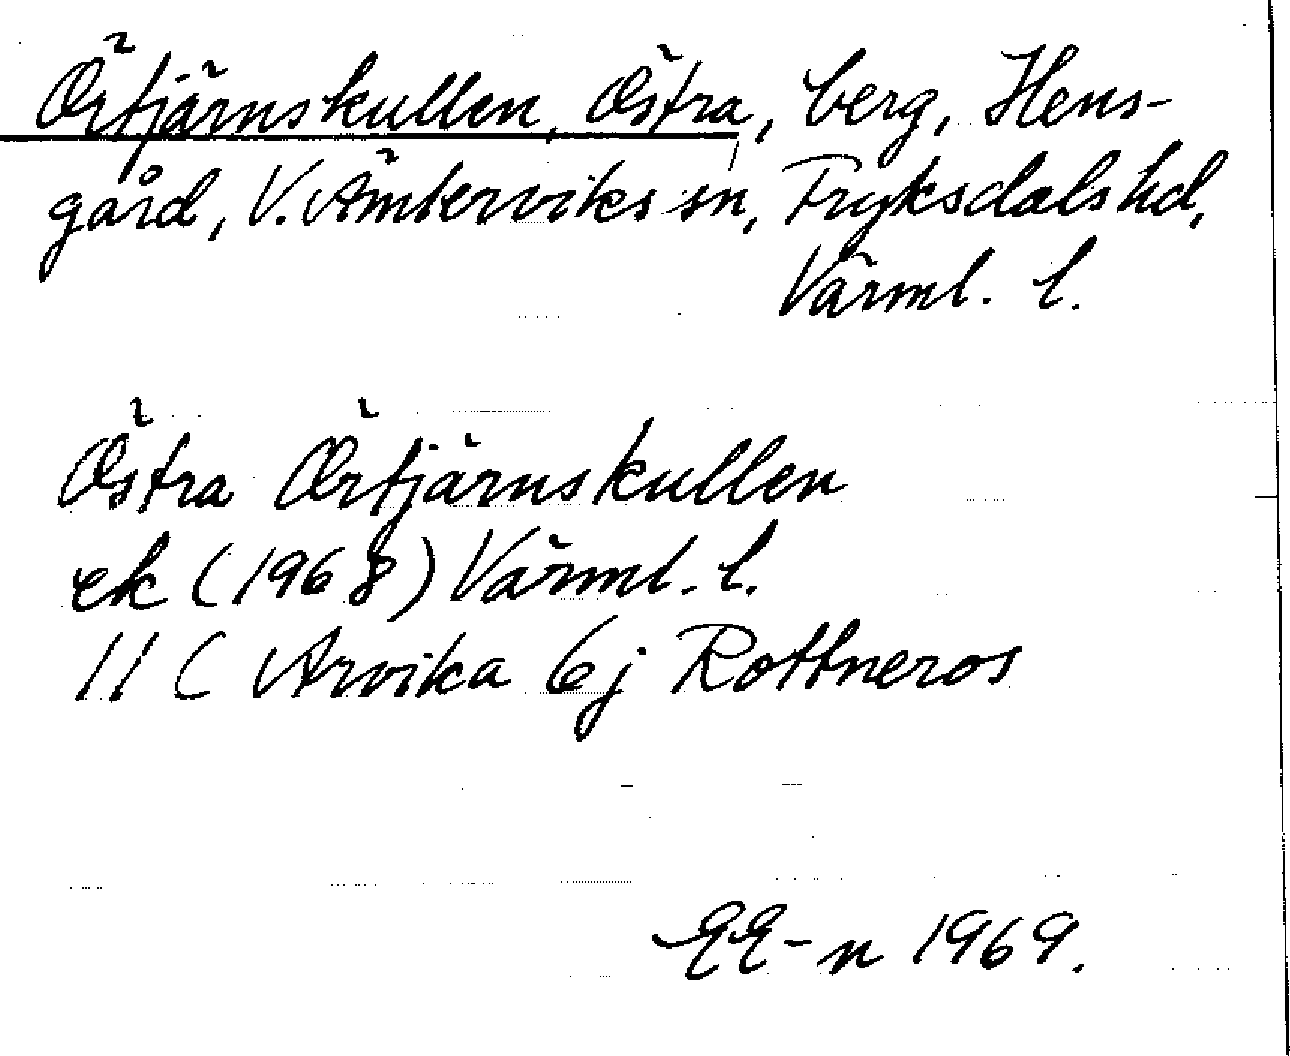 Örtjärnskullen, Östra, berg, Hens-
gård, V. Ämterviks sn, Fryksdals hd,
Värml. l.
Östra Örtjärnskullen
ek (1968) Värml. l.
11 C Arvika 6j Rottneros
EE-n 1969.